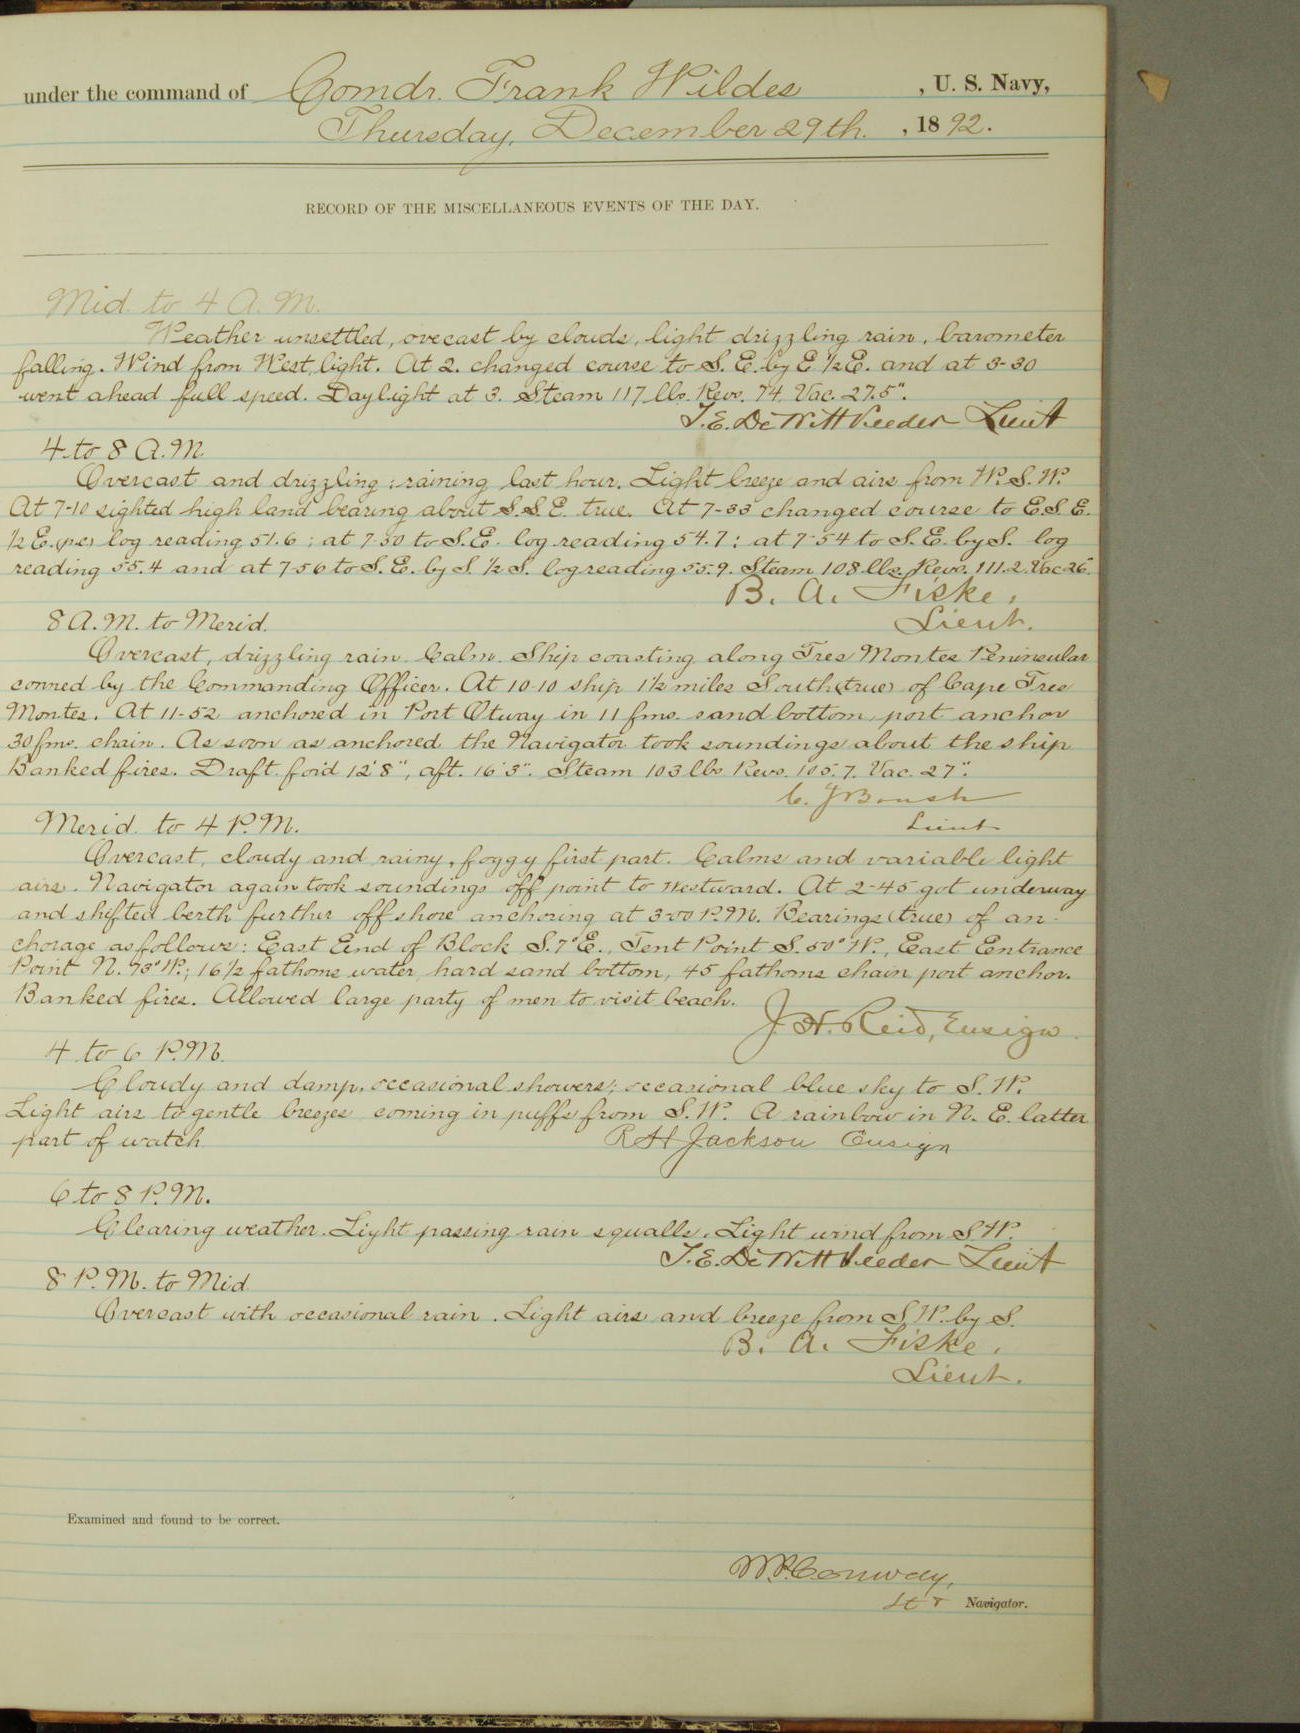 under the command of Comdr. Frank Wildes, U. S. Navy,
Thursday, December 29th., 1892.
RECORD OF THE MISCELLANEOUS EVENTS OF THE DAY.
Mid. to 4 A. M.
Weather unsettled, ovecast by clouds, light drizzling rain, barometer
falling. Wind from West, light. At 2. changed course to S. E. by E ½ E. and at 3-30
went ahead full speed. Daylight at 3. Steam 117 lbs. Revs. 74. Vac. 27.5".
T. E. DeWitt Veeder Lieut
4 to 8 A. M.
Overcast and drizzling; raining last hour. Light breeze and airs from W. S. W.
At 7-10 sighted high land bearing about S. S. E. true. At 7-33 changed course to E. S. E.
½ E. (p.c.) log reading 51.6; at 7-50 to S. E. log reading 54.7; at 7-54 to S. E. by S. log
reading 55.4 and at 7-56 to S. E. by S. ½ S. log reading 55.9. Steam 108 lbs. Revs. 111.2. Vac 26".
B. A. Fiske,
Lieut.
8 A. M. to Merid.
Overcast, drizzling rain. Calm. Ship coasting along Tres Montes Peninsular
conned by the Commanding Officer. At 10-10 ship 1½ miles South (true) of Cape Tres
Montes. At 11-52 anchored in Port Otway in 11 fms. sand bottom, port anchor
30 fms. chain. As soon as anchored the Navigator took soundings about the ship
Banked fires. Draft. for'd 12' 8", aft. 16' 3". Steam 103 lbs Revs. 105.7. Vac. 27".
C. J Boush
Lieut
Merid. to 4 P. M.
Overcast, cloudy and rainy, foggy first part. Calms and variable light
airs. Navigator again took soundings off point to westward. At 2-45 got underway
and shifted berth further off shore anchoring at 3-00 P. M. Bearings (true) of an-
chorage as follows: East End of Block S. 7° E., Tent Point S. 50° W., East Entrance
Point N. 73° W.; 16½ fathoms water, hard sand bottom, 45 fathoms chain port anchor.
Banked fires. Allowed large party of men to visit beach.
J. H. Reid, Ensign.
4 to 6 P. M.
Cloudy and damp, occasional showers; occasional blue sky to S. W.
Light airs to gentle breezes coming in puffs from S. W. A rainbow in N. E. latter
part of watch
R H Jackson Ensign
6 to 8 P. M.
Clearing weather. Light passing rain squalls. Light wind from S. W.
T. E. DeWitt Veeder Lieut
8 P. M. to Mid
Overcast with occasional rain. Light airs and breeze from S W. by S.
B. A. Fiske,
Lieut.
Examined and found to be correct.
Conway,
Navigator.